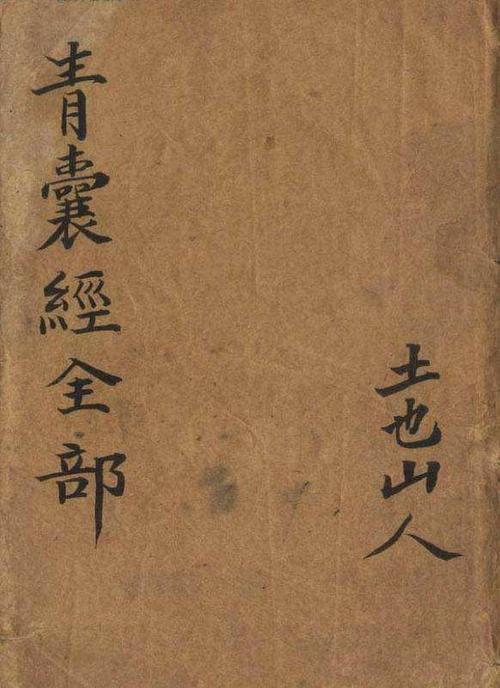 青囊經全部
土也山人